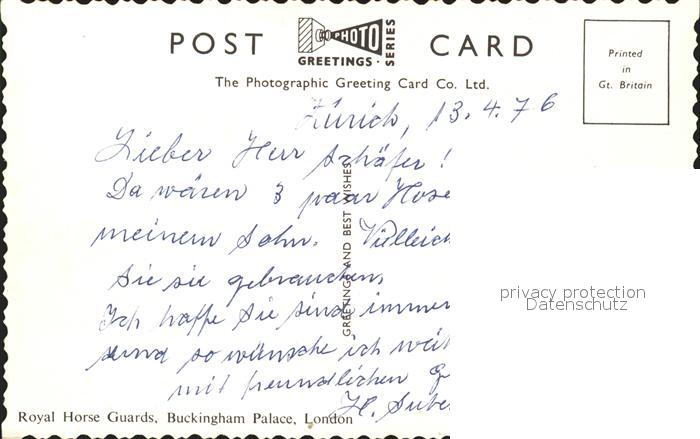 POST CARD
PHOTO
GREETINGS · SERIES
The Photographic Greeting Card Co. Ltd.
Printed
in
Gt. Britain
Zürich, 13.4.76
Lieber Herr Schäfer!
Da wären 3 paar Hose
meinem Sohn. Vielleich
Sie sie gebrauchen,
Ich hoffe Sie sind immer
und so wünsche ich weit
mit freundlichen G
GREETINGS AND BEST WISHES
privacy protection
Datenschutz
Royal Horse Guards, Buckingham Palace, London
H.